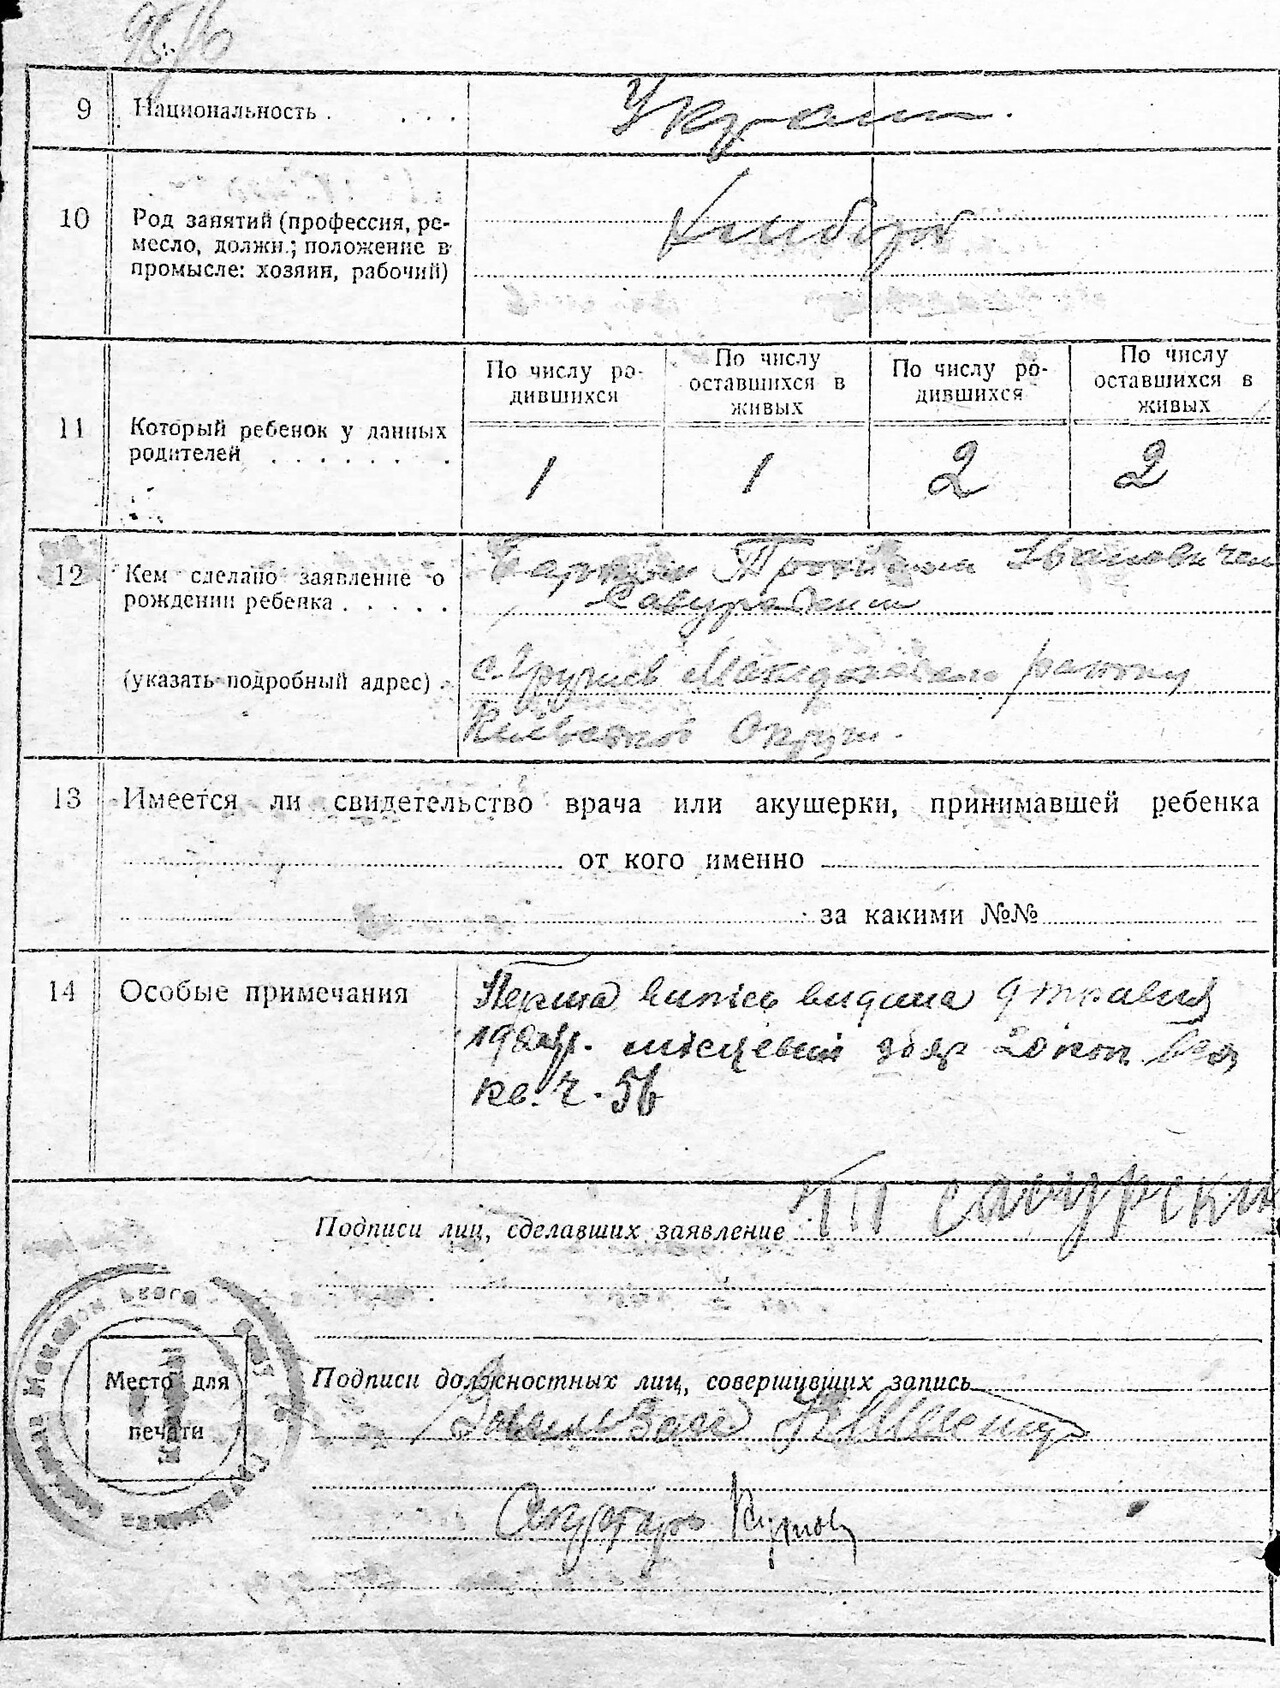 9 Национальность . . . .
Украин.
10 Род занятий (профессия, ре-
месло, должн.; положение в
промысле: хозяин, рабочий)
Хлибороб
11 Который ребенок у данных
родителей . . . . . . .
По числу ро-
дившихся
По числу
оставшихся в
живых
По числу ро-
дившихся
По числу
оставшихся в
живых
1 1 2 2
12 Кем сделано заявление о
рождении ребенка . . . . .
Ивановичем
(указать подробный адрес) .
с. Грузьке району
Округи.
13 Имеется ли свидетельство врача или акушерки, принимавшей ребенка
от кого именно
за какими №№
14 Особые примечания
Перша випись видана 9 травня
місцевий збір 20 коп.
кв. ч. 56
Подписи лиц, сделавших заявление
Место для
печати
Подписи должностных лиц, совершивших запись
Секретарь